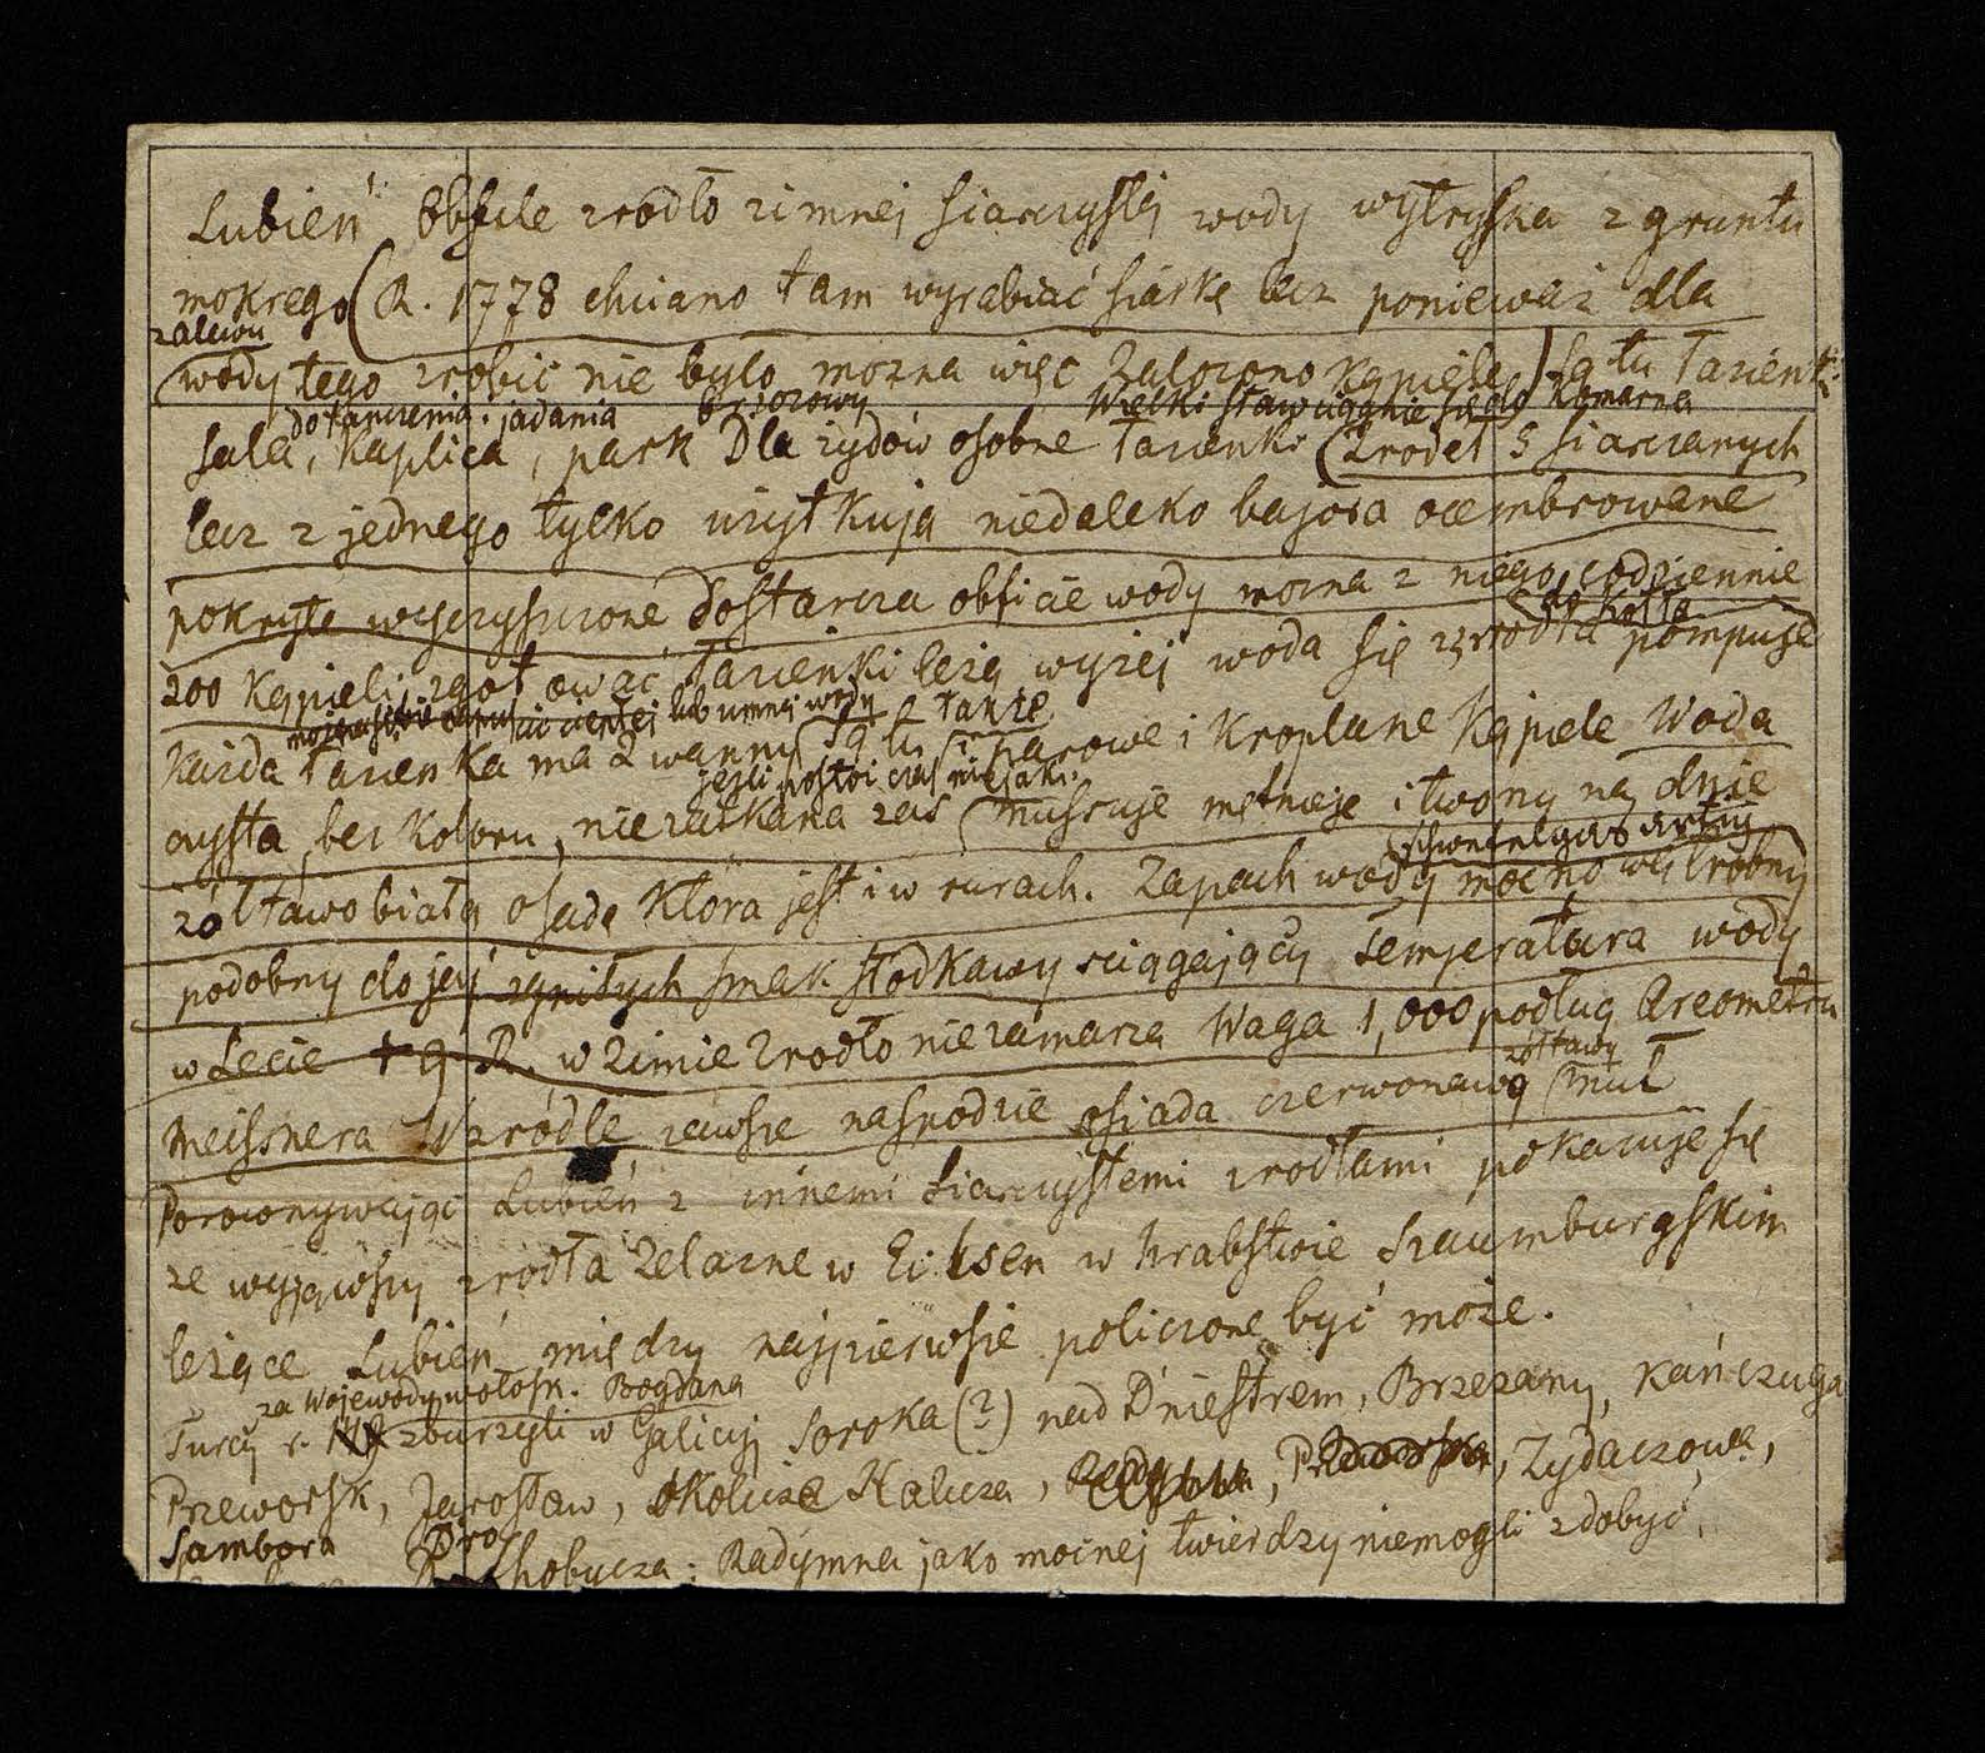 Lubień Obfite zrodło zimnej siarczystej wody wytryska z gruntu
mokrego (R. 1778 chciano tam wyrabiać siarkę lecz ponieważ dla
zalewu
wody tego zrobić nie bylo mozna więc Zalozono kąpiele) Są tu Łazienki
do tanczenia i jadania brzozowy Wielki staw ciągnie się do Komarna
sala, Kaplica, park Dla zydów osobne Łazienki (Zrodeł 5 siarczanych
lecz z jednego tylko uzytkują niedaleko bajora ocembrowane
pokryte wyczyszczone Dostarcza obficie wody mozna z niego codziennie
200 Kąpieli zgotować Łazienki leżą wyzej woda się z zrodła pompuje
do Kotła
mozna sobie napuścić ciepłej lub zimnej wody także
Kazda Łazienka ma 2 wanny Są tu i parowe i Kroplane Kąpiele Woda
jezli postoi czas niejaki
czysta, bez Koloru, niezatkana zaś mussuje mętnieje i tworzy na dnie
żółtawo białą osadę Która jest i w rurach. Zapach wody mocno wątrobny
podobny do jaj zgniłych smak słodkawy sciągający Temperatura wody
w Lecie + 9 R. w Zimie Zrodło niezamarza Waga 1,000 podług Areometru
żółtawy
Meissnera W zródle zawsze naspodzie osiada czerwonawo muł
Porownywając Lubień z innemi siarczystemi zrodłami pokazuje się
ze wyjąwszy zrodła Zelazne w Eilsen w hrabstwie Szaumburgskim
leżące Lubień między najpierwsze policzone być może.
za Wojewody wołosk. Bogdana
Turcy r. zburzyli w Galicyi Soroka (?) nad Dniestrem, Brzezany, Kańczuga
Przeworsk, Jarosław, okolice Halicza, Zydaczowa,
Sambora Drohobycza: Radymna jako mocnej twierdzy niemogli zdobyć,